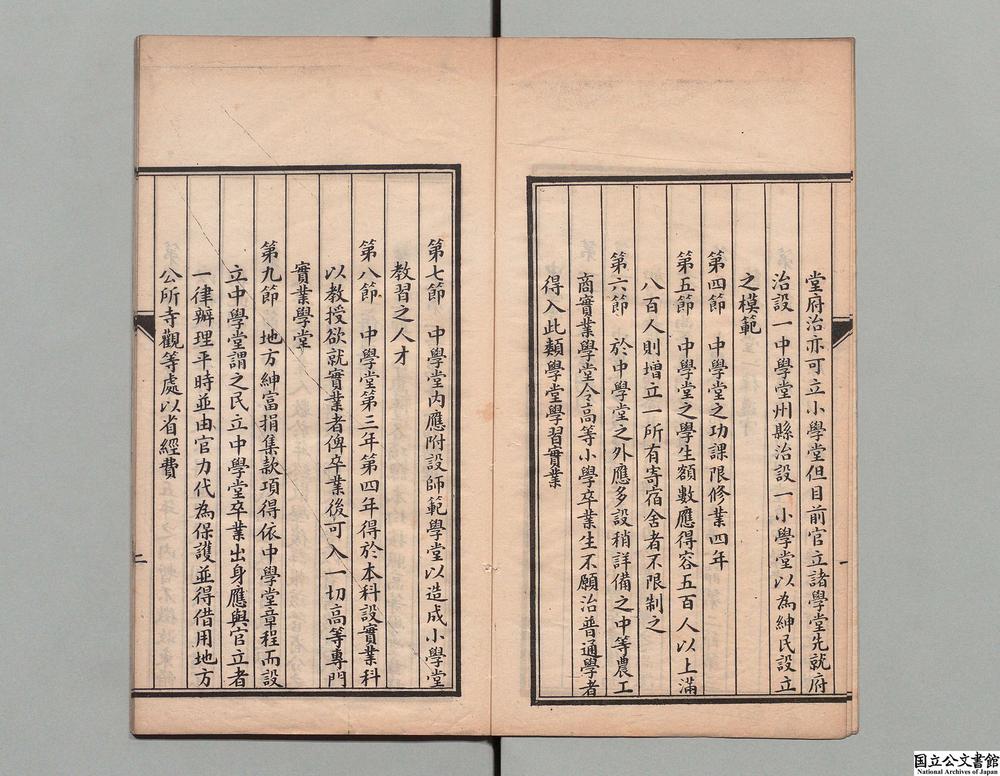 堂府治亦可立小學堂但目前官立諸學堂先就府
治設一中學堂州縣治設一小學堂以為紳民設立
之模範
第四節　中學堂之功課限修業四年
第五節　中學堂之學生額數應得容五百人以上滿
八百人則增立一所有寄宿舍者不限制之
第六節　於中學堂之外應多設稍詳備之中等農工
商實業學堂令高等小學卒業生不願治普通學者
得入此類學堂學習實業
一
第七節　中學堂內應附設師範學堂以造成小學堂
教習之人才
第八節　中學堂第三年第四年得於本科設實業科
以教授欲就實業者俾卒業後可入一切高等專門
實業學堂
第九節　地方紳富捐集款項得依中學堂章程而設
立中學堂謂之民立中學堂卒業出身應與官立者
一律辦理平時並由官力代為保護並得借用地方
公所寺觀等處以省經費
二
国立公文書館
National Archives of Japan